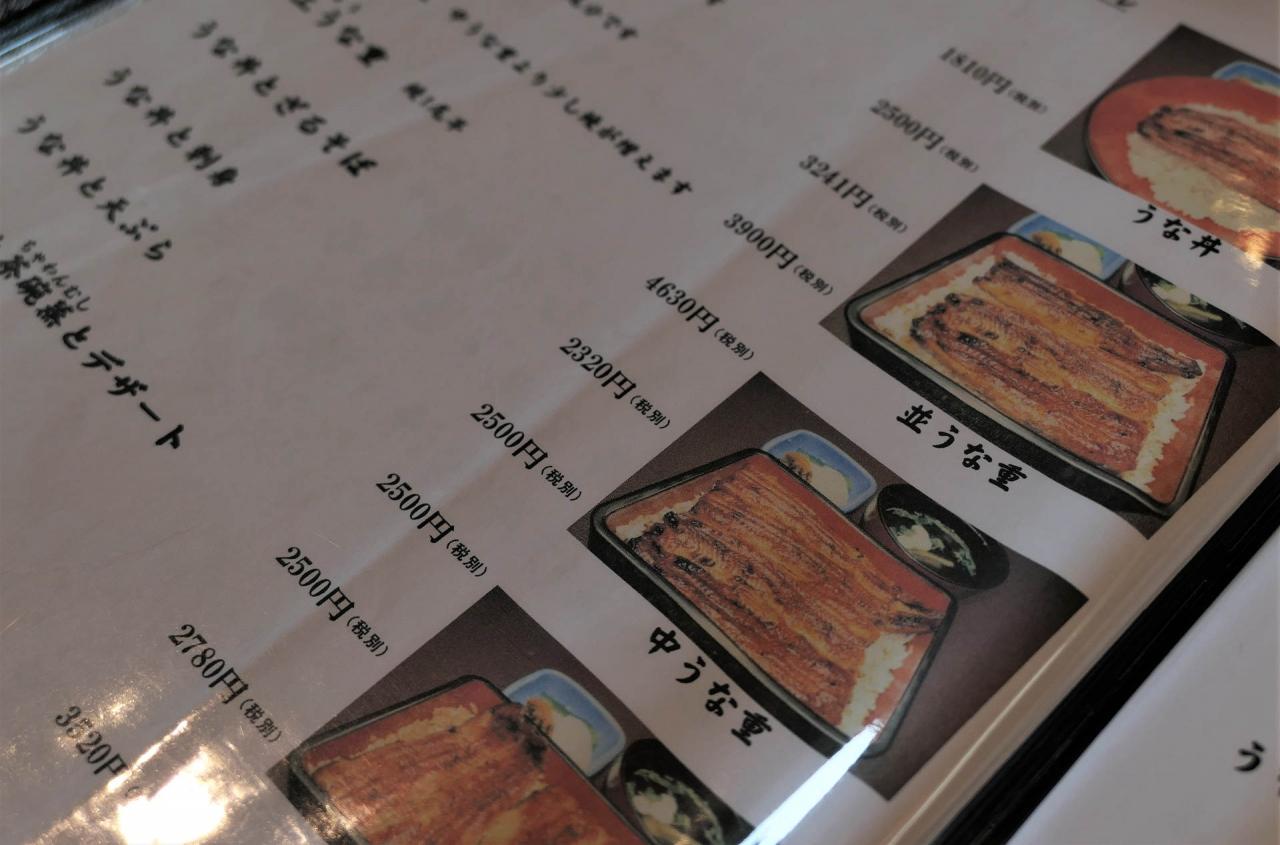 うな重
鰻1尾半
中うな重より少し鰻が増えます
うな丼とざるそば
うな丼と刺身
うな丼と天ぷら
ちゃわんむし
茶碗蒸とデザート
1810円(税別)
2500円(税別)
3241円(税別)
3900円(税別)
4630円(税別)
2320円(税別)
2500円(税別)
2500円(税別)
2500円(税別)
2780円(税別)
うな丼
並うな重
中うな重
う